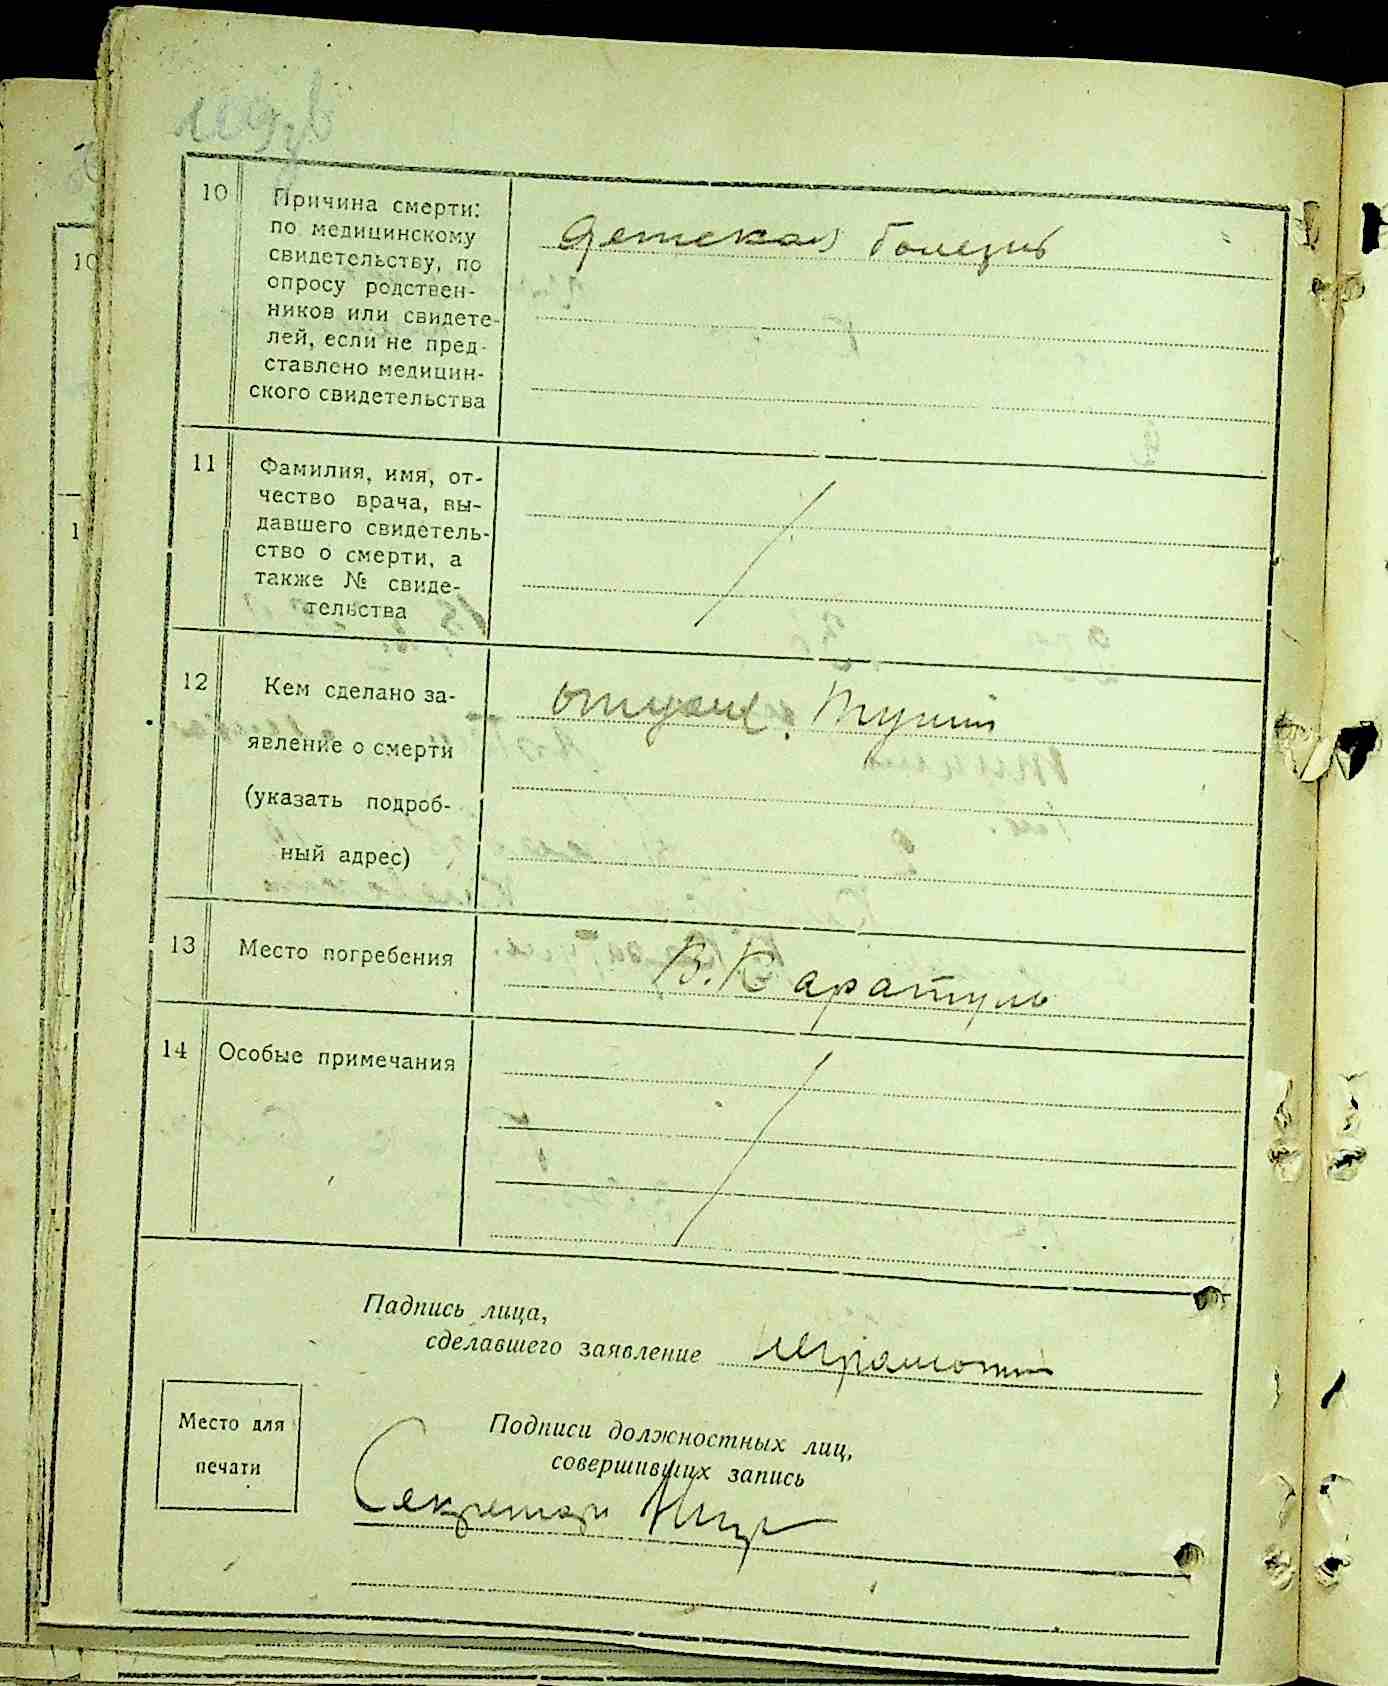 10 Причина смерти: детская болезнь
по медицинскому
свидетельству, по
опросу родствен-
ников или свидете-
лей, если не пред-
ставлено медицин-
ского свидетельства
11 Фамилия, имя, от-
чество врача, вы-
давшего свидетель-
ство о смерти, а
также № свиде-
тельства
12 Кем сделано за-
явление о смерти
(указать подроб-
ный адрес)
13 Место погребения В. Каратуль
14 Особые примечания
Падпись лица,
сделавшего заявление
Место для
печати
Подписи должностных лиц,
совершивших запись
Секретарь
10
1